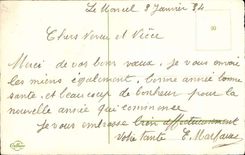 Le 8 Janvier 34
Chers et
Merci de vos bons vœux, je vous envoi
les miens également, bonne année bonne
santé, et beaucoup de bonheur pour la
nouvelle année qui commence
Je vous embrasse bien affectueusement
votre tante E.